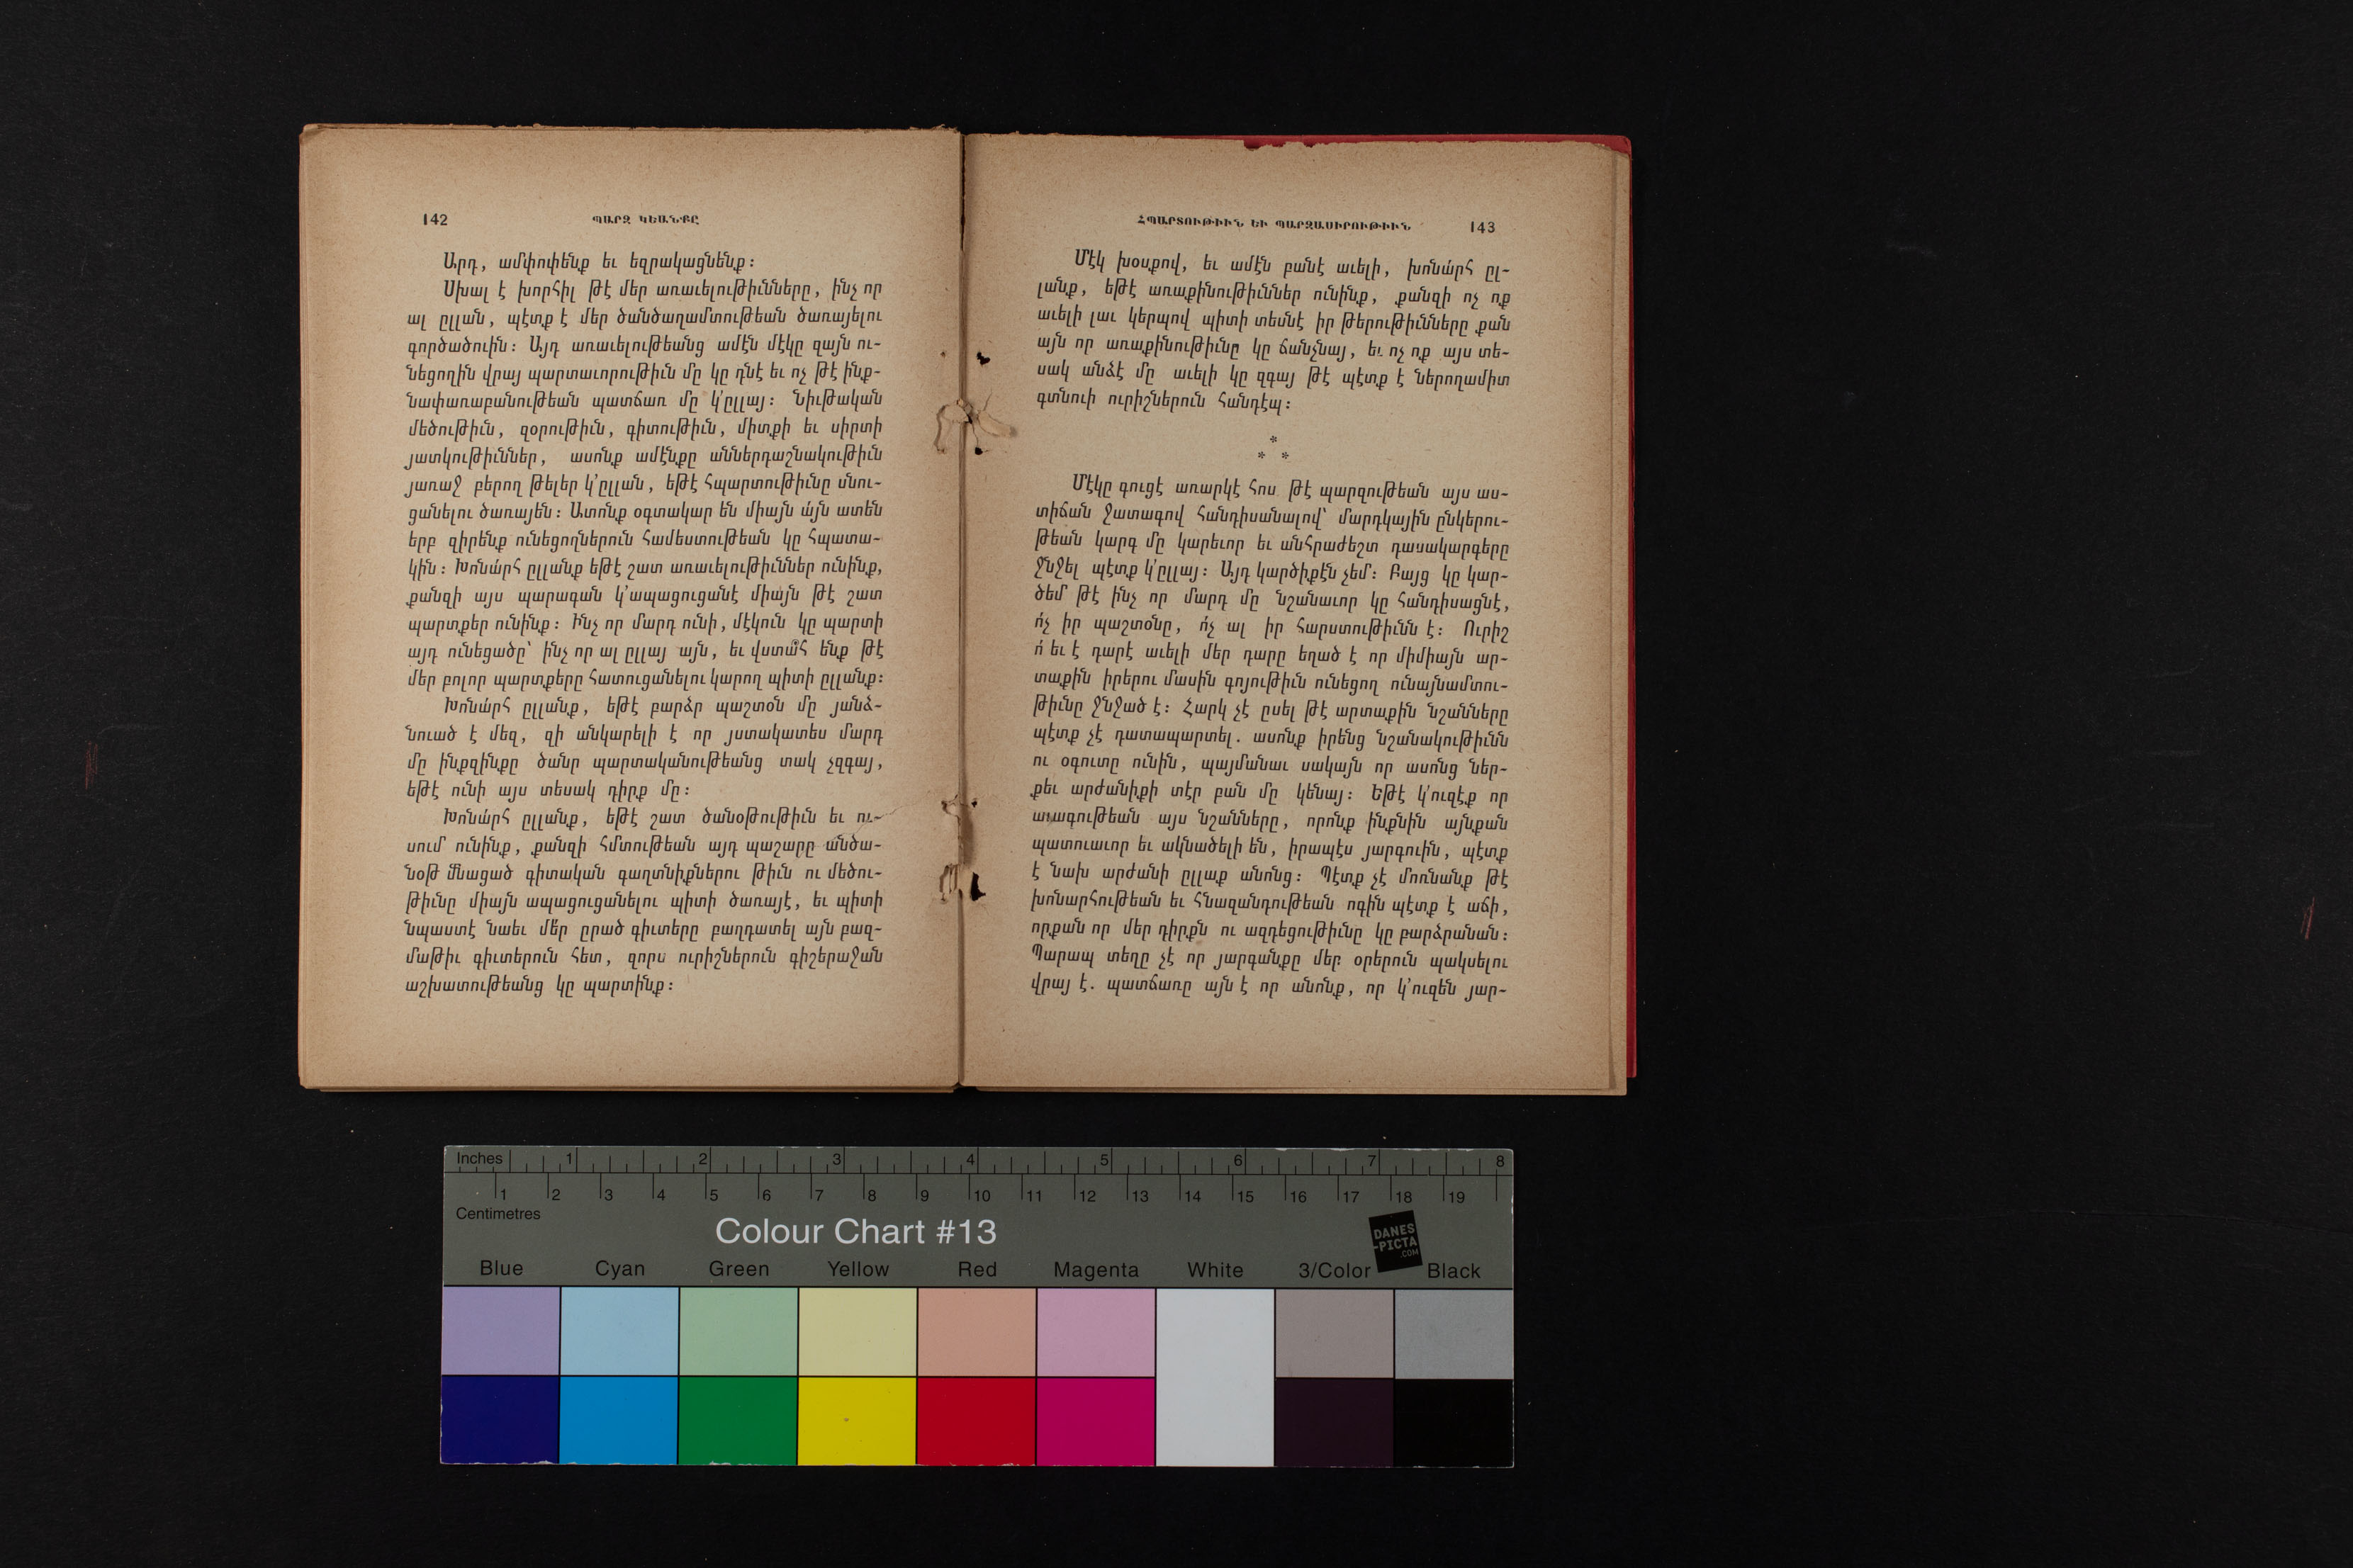 142
ՊԱՐԶ ԿԵԱՆՔԸ
Արդ, ամփոփենք եւ եզրակացնենք։
Սխալ է խորհիլ թէ մեր առաւելութիւնները, ինչ որ
ալ ըլլան, պէտք է մեր ծանծաղամտութեան ծառայելու
գործածուին։ Այդ առաւելութեանց ամէն մէկը զայն ու-
նեցողին վրայ պարտաւորութիւն մը կը դնէ եւ ոչ թէ ինք-
նափառաբանութեան պատճառ մը կ՚ըլլայ։ Նիւթական
մեծութիւն, զօրութիւն, գիտութիւն, միտքի եւ սիրտի
յատկութիւններ, ասոնք ամէնքը աններդաշնակութիւն
յառաջ բերող թելեր կ՚ըլլան, եթէ հպարտութիւնը սնու-
ցանելու ծառայեն։ Ատոնք օգտակար են միայն ա՛յն ատեն
երբ զիրենք ունեցողներուն համեստութեան կը նպատա-
կին։ Խոնա՛րհ ըլլանք եթէ շատ առաւելութիւններ ունինք,
քանզի այս պարագան կ՚ապացուցանէ միայն թէ շատ
պարտքեր ունինք։ Ինչ որ մարդ ունի, մէկուն կը պարտի
այդ ունեցածը՝ ինչ որ ալ ըլլայ այն, եւ վստա՞հ ենք թէ
մեր բոլոր պարտքերը հատուցանելու կարող պիտի ըլլանք։
Խոնա՛րհ ըլլանք, եթէ բարձր պաշտօն մը յանձ-
նուած է մեզ, զի անկարելի է որ յստակատես մարդ
մը ինքզինքը ծանր պարտականութեանց տակ չզգայ,
եթէ ունի այս տեսակ դիրք մը։
Խոնա՛րհ ըլլանք, եթէ շատ ծանօթութիւն եւ ու-
սում ունինք, քանզի հմտութեան այդ պաշարը անծա-
նօթ մնացած գիտական գաղտնիքներու թիւն ու մեծու-
թիւնը միայն ապացուցանելու պիտի ծառայէ, եւ պիտի
նպաստէ նաեւ մե՛ր ըրած գիւտերը բաղդատել այն բազ-
մաթիւ գիւտերուն հետ, զորս ուրիշներուն գիշերաջան
աշխատութեանց կը պարտինք։
ՀՊԱՐՏՈՒԹԻՒՆ ԵՒ ՊԱՐԶԱՍԻՐՈՒԹԻՒՆ
143
Մէկ խօսքով, եւ ամէն բանէ աւելի, խոնա՛րհ ըլ-
լանք, եթէ առաքինութիւններ ունինք, քանզի ոչ ոք
աւելի լաւ կերպով պիտի տեսնէ իր թերութիւնները քան
այն որ առաքինութիւնը կը ճանչնայ, եւ ոչ ոք այս տե-
սակ անձէ մը աւելի կը զգայ թէ պէտք է ներողամիտ
գտնուի ուրիշներուն հանդէպ։
*
* *
Մէկը գուցէ առարկէ հոս թէ պարզութեան այս աս-
տիճան ջատագով հանդիսանալով՝ մարդկային ընկերու-
թեան կարգ մը կարեւոր եւ անհրաժեշտ դասակարգերը
ջնջել պէտք կ՚ըլլայ։ Այդ կարծիքէն չեմ։ Բայց կը կար-
ծեմ թէ ինչ որ մարդ մը նշանաւոր կը հանդիսացնէ,
ո՛չ իր պաշտօնը, ո՛չ ալ իր հարստութիւնն է։ Ուրիշ
ո՛ եւ է դարէ աւելի մեր դարը եղած է որ միմիայն ար-
տաքին իրերու մասին գոյութիւն ունեցող ունայնամտու-
թիւնը ջնջած է։ Հարկ չէ ըսել թէ արտաքին նշանները
պէտք չէ դատապարտել. ասոնք իրենց նշանակութիւնն
ու օգուտը ունին, պայմանաւ սակայն որ ասոնց ներ-
քեւ արժանիքի տէր բան մը կենայ։ Եթէ կ՚ուզէք որ
աւագութեան այս նշանները, որոնք ինքնին այնքան
պատուաւոր եւ ակնածելի են, իրապէս յարգուին, պէտք
է նախ արժանի ըլլաք անոնց։ Պէտք չէ մոռնանք թէ
խոնարհութեան եւ հնազանդութեան ոգին պէտք է աճի,
որքան որ մեր դիրքն ու ազդեցութիւնը կը բարձրանան։
Պարապ տեղը չէ որ յարգանքը մեր օրերուն պակսելու
վրայ է. պատճառը այն է որ անոնք, որ կ՚ուզեն յար-
Inches 1 2 3 4 5 6 7 8
1 2 3 4 5 6 7 8 9 10 11 12 13 14 15 16 17 18 19
Centimetres
Colour Chart #13
DANES
-PICTA
.COM
Blue Cyan Green Yellow Red Magenta White 3/Color Black